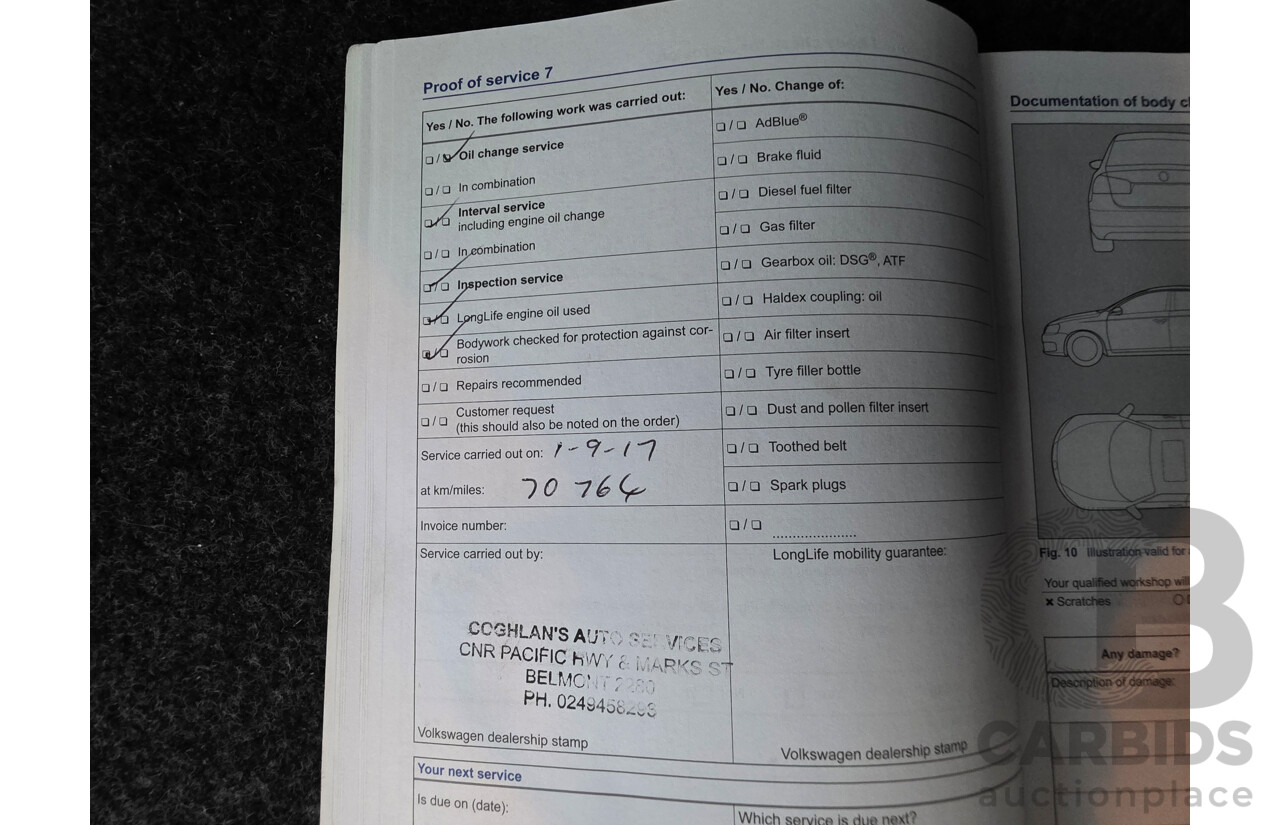 Proof of service 7
Yes / No. The following work was carried out:
❏ / ❏ Oil change service
❏ / ❏ In combination
❏ / ❏ Interval service
including engine oil change
❏ / ❏ In combination
❏ / ❏ Inspection service
❏ / ❏ LongLife engine oil used
❏ / ❏ Bodywork checked for protection against cor-
rosion
❏ / ❏ Repairs recommended
❏ / ❏ Customer request
(this should also be noted on the order)
Service carried out on: 1-9-17
at km/miles: 70 764
Invoice number:
Service carried out by:
COGHLAN'S AUTO SERVICES
CNR PACIFIC HWY & MARKS ST
BELMONT 2280
PH. 0249458293
Volkswagen dealership stamp
Yes / No. Change of:
❏ / ❏ AdBlue®
❏ / ❏ Brake fluid
❏ / ❏ Diesel fuel filter
❏ / ❏ Gas filter
❏ / ❏ Gearbox oil: DSG®, ATF
❏ / ❏ Haldex coupling: oil
❏ / ❏ Air filter insert
❏ / ❏ Tyre filler bottle
❏ / ❏ Dust and pollen filter insert
❏ / ❏ Toothed belt
❏ / ❏ Spark plugs
❏ / ❏ .....................
LongLife mobility guarantee:
Volkswagen dealership stamp
Your next service
Is due on (date):
Which service is due next?
Documentation of body c
Fig. 10 Illustration valid for
Your qualified workshop will
× Scratches
Any damage?
Description of damage:
CARBIDS
auctionplace